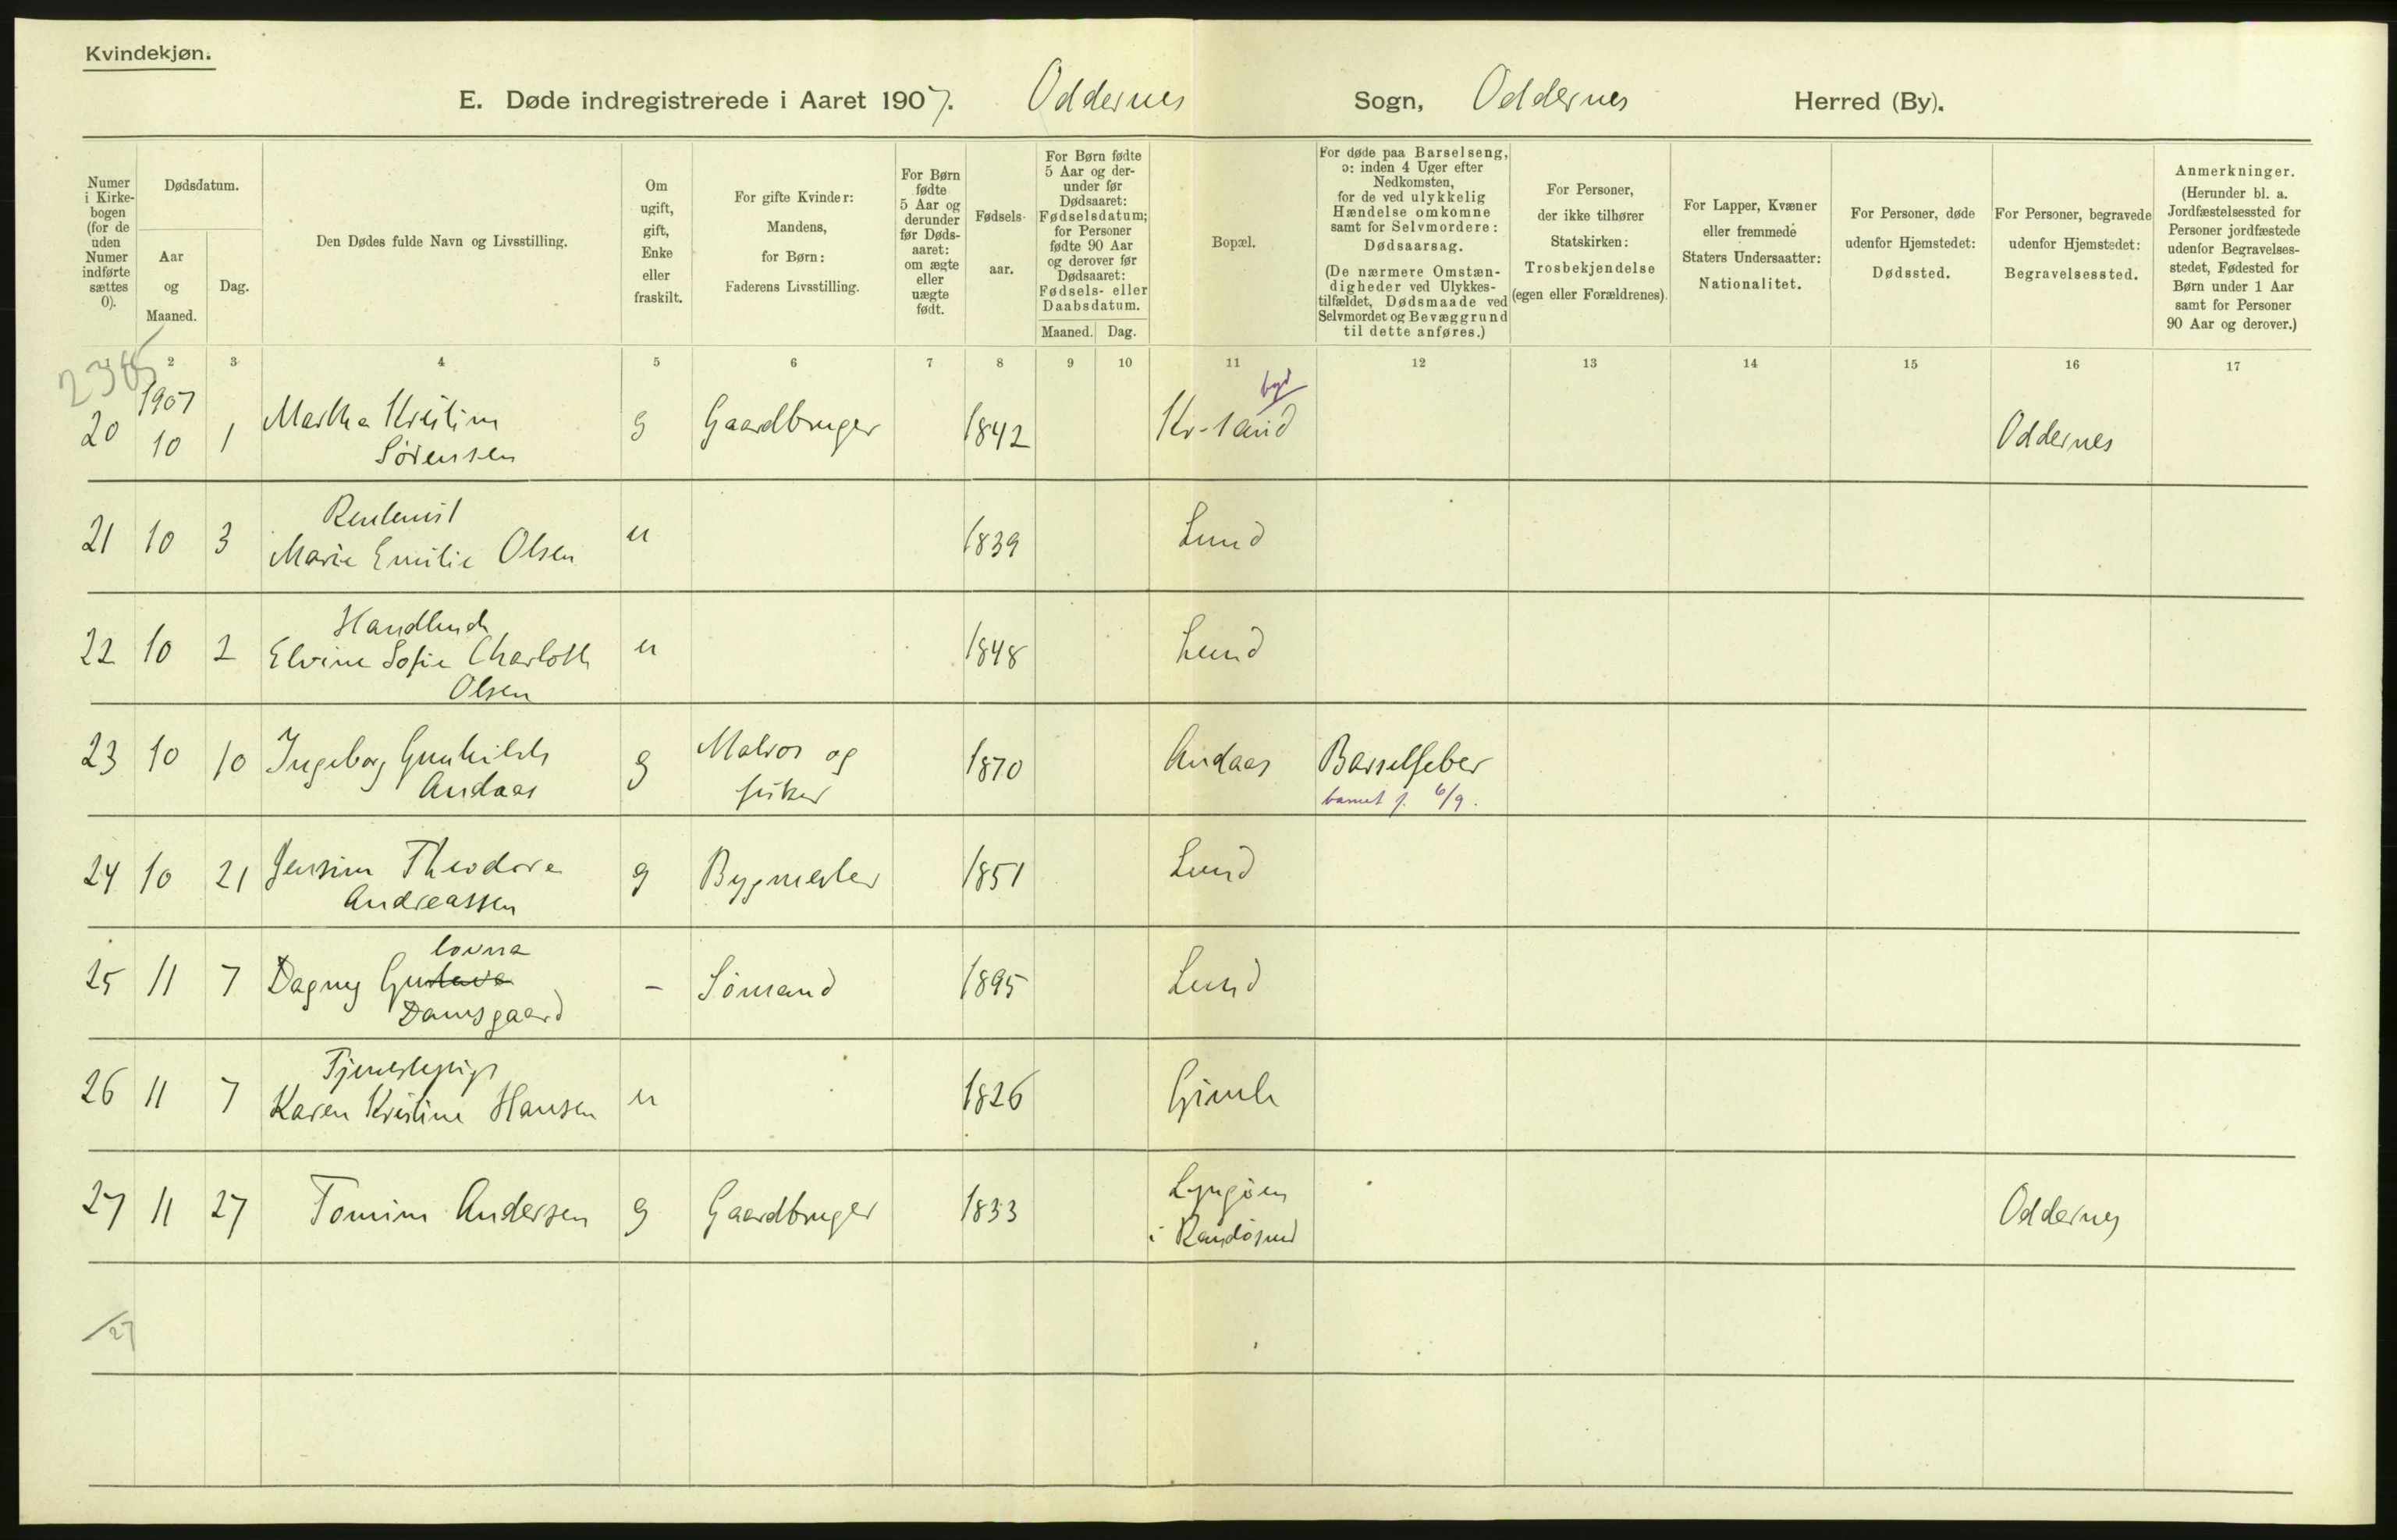 Kvindekjøn.
E. Døde indregistrerede i Aaret 1907. Oddernes Sogn, Oddernes Herred (By).
Numer i Kirke-bogen (for de uden Numer indførte sættes 0).
Dødsdatum.
Aar og Maaned.
Dag.
Den Dødes fulde Navn og Livsstilling.
Om ugift, gift, Enke eller fraskilt.
For gifte Kvinder: Mandens, for Børn: Faderens Livsstilling.
For Børn fødte 5 Aar og derunder før Døds-aaret: om ægte eller uægte født.
Fødsels-aar.
For Børn fødte 5 Aar og der-under før Dødsaaret: Fødselsdatum; for Personer fødte 90 Aar og derover før Dødsaaret: Fødsels- eller Daabsdatum.
Maaned. Dag.
Bopæl.
For døde paa Barselseng, ɔ: inden 4 Uger efter Nedkomsten, for de ved ulykkelig Hændelse omkomne samt for Selvmordere: Dødsaarsag.
(De nærmere Omstæn-digheder ved Ulykkes-tilfældet, Dødsmaade ved Selvmordet og Bevæggrund til dette anføres.)
For Personer, der ikke tilhører Statskirken: Trosbekjendelse (egen eller Forældrenes).
For Lapper, Kvæner eller fremmede Staters Undersaatter: Nationalitet.
For Personer, døde udenfor Hjemstedet: Dødssted.
For Personer, begravede udenfor Hjemstedet: Begravelsessted.
Anmerkninger. (Herunder bl. a. Jordfæstelsessted for Personer jordfæstede udenfor Begravelses-stedet, Fødested for Børn under 1 Aar samt for Personer 90 Aar og derover.)
2 3 4 5 6 7 8 9 10 11 12 13 14 15 16 17
1907
20 10 1 Martha Kristine Sørensen g Gaardbruger 1842 Kr-sand by Oddernes
21 10 3 Rentenist Marie Emilie Olsen u 1839 Lund
22 10 2 Handlende Elvine Sofie Charlotte Olsen u 1848 Lund
23 10 10 Ingeborg Gunhilde Andaas g Matros og fisker 1870 Andaas Barselfeber
barnet f. 6/9.
24 10 21 Jensine Theodora Andreassen g Bygmester 1851 Lund
25 11 7 Dagny Gustava lovna Damsgaard - Sømand 1895 Lund
26 11 7 Tjenestepige Karen Kristine Hansen u 1826 Gimle
27 11 27 Tomine Andersen g Gaardbruger 1833 Lyngøen i Randøsund Oddernes
/27